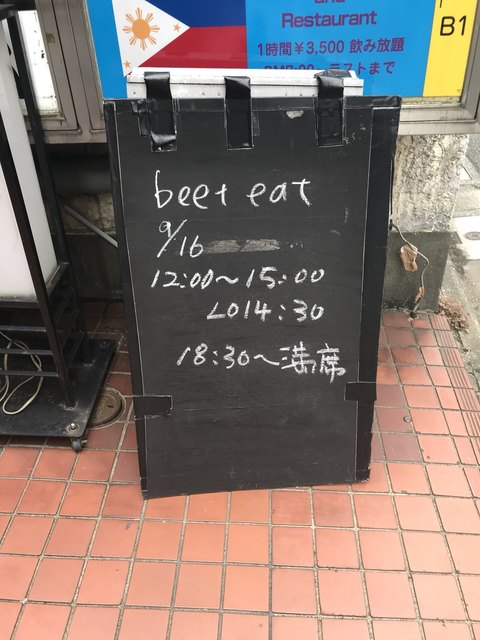 and
Restaurant
1時間¥3,500 飲み放題
PM8:00～ラストまで
B1
beet eat
9/16
12:00～15:00
LO14:30
18:30～満席